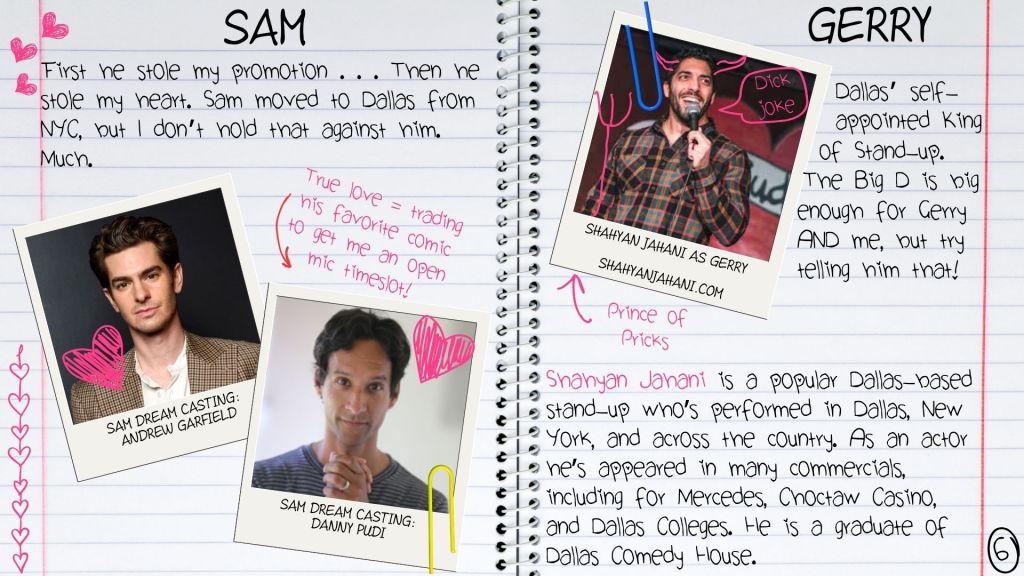 SAM
First he stole my promotion . . . Then he
stole my heart. Sam moved to Dallas from
NYC, but I don't hold that against him.
Much.
True love = trading
his favorite comic
to get me an open
mic timeslot!
SAM DREAM CASTING:
ANDREW GARFIELD
SAM DREAM CASTING:
DANNY PUDI
GERRY
Dick
joke
SHAHYAN JAHANI AS GERRY
SHAHYANJAHANI.COM
Prince of
Pricks
Dallas' self-
appointed King
of Stand-up.
The Big D is big
enough for Gerry
AND me, but try
telling him that!
Shahyan Jahani is a popular Dallas-based
stand-up who's performed in Dallas, New
York, and across the country. As an actor
he's appeared in many commercials,
including for Mercedes, Choctaw Casino,
and Dallas Colleges. He is a graduate of
Dallas Comedy House.
6